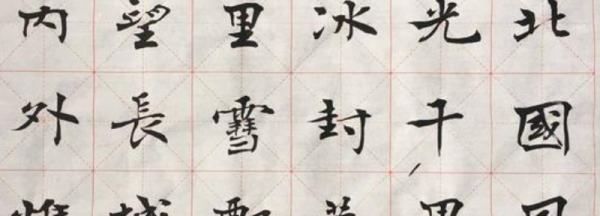 北國
光千
冰封
里雪
望長
内外